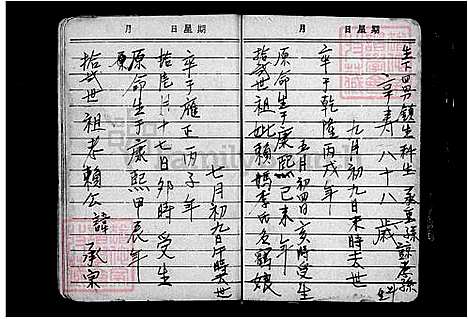 月　日　星期
月　日　星期
生下四男鎮生科生承
享壽八十八歲
九月初九日未時去世
卒于乾隆丙戌年
五月初四日亥時受生
原命生于康熙己未年
拾貳世祖妣賴媽李氏
娘
七月初九日午時去世
卒于雍正丙子年
月十七日卯時受生
原命生于康熙甲辰年
原
拾貳世祖考賴公諱承宗